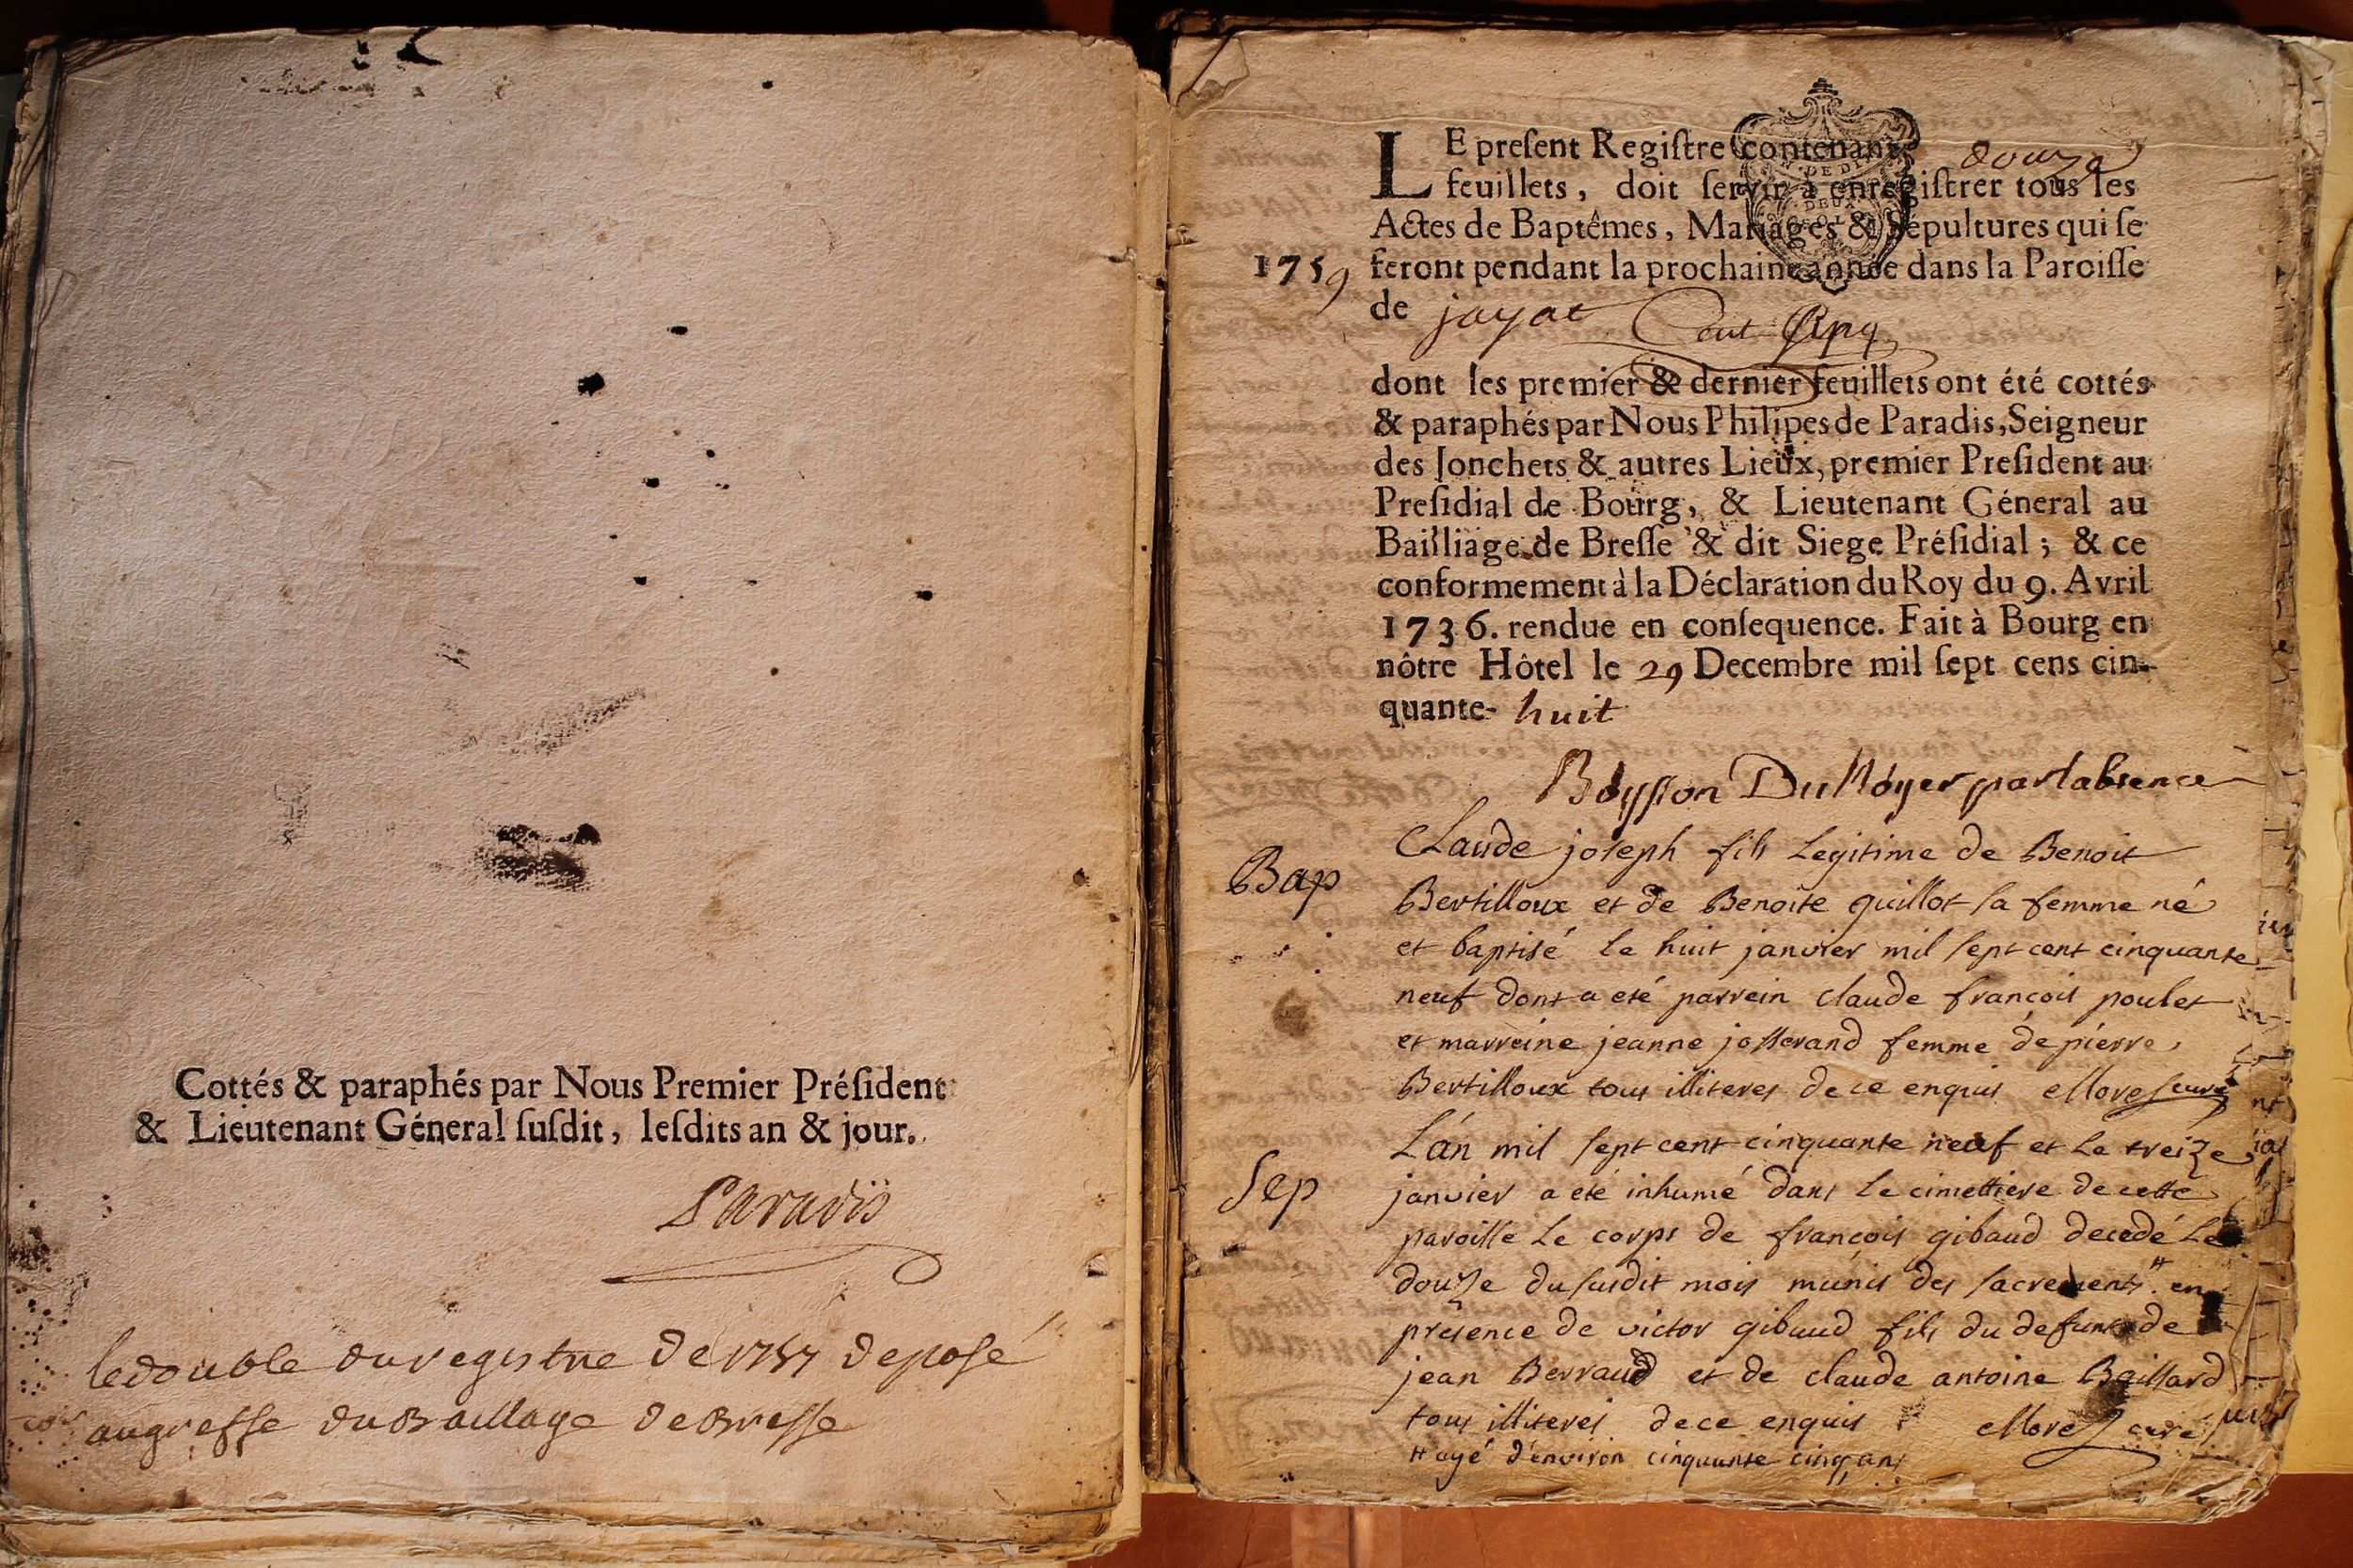 Cottés & paraphés par Nous Premier Préſident
& Lieutenant Géneral ſuſdit, leſdits an & jour.
Paradis
le double du registre de 1757 deposé
au greffe du Baillage de Bresse
douze
LE preſent Regiſtre contenant
feuillets, doit ſervir à enregiſtrer tous les
Actes de Baptêmes, Mariages & Sépultures qui ſe
1759 feront pendant la prochaine année dans la Paroiſſe
de jayat
dont les premier & dernier feuillets ont été cottés
& paraphés par Nous Philipes de Paradis, Seigneur
des Jonchets & autres Lieux, premier Preſident au
Preſidial de Bourg, & Lieutenant Géneral au
Bailliage de Breſſe & dit Siege Préſidial; & ce
conformement à la Déclaration du Roy du 9. Avril
1736. rendue en conſequence. Fait à Bourg en
nôtre Hôtel le 29 Decembre mil ſept cens cin-
quante- huit
par labsence
Bap
Claude joseph fils Legitime de Benoit
Bertilloux et de Benoite guillot sa femme né
et baptisé le huit janvier mil sept cent cinquante
neuf dont a eté parrein claude françois poulet
et marreine jeanne josserand femme de pierre
Bertilloux tous illiteres de ce enquis curé
L'an mil sept cent cinquante neuf et le treize
Sep
janvier a eté inhumé dans le cimettiere de cette
paroisse le corps de françois gibaud decedé le
douze du susdit mois munis des sacrements # en
présence de victor gibaud fils du defunt de
jean Berraud et de claude antoine Baillard
tous illiteres de ce enquis curé
# agé d'environ cinquante cinq ans